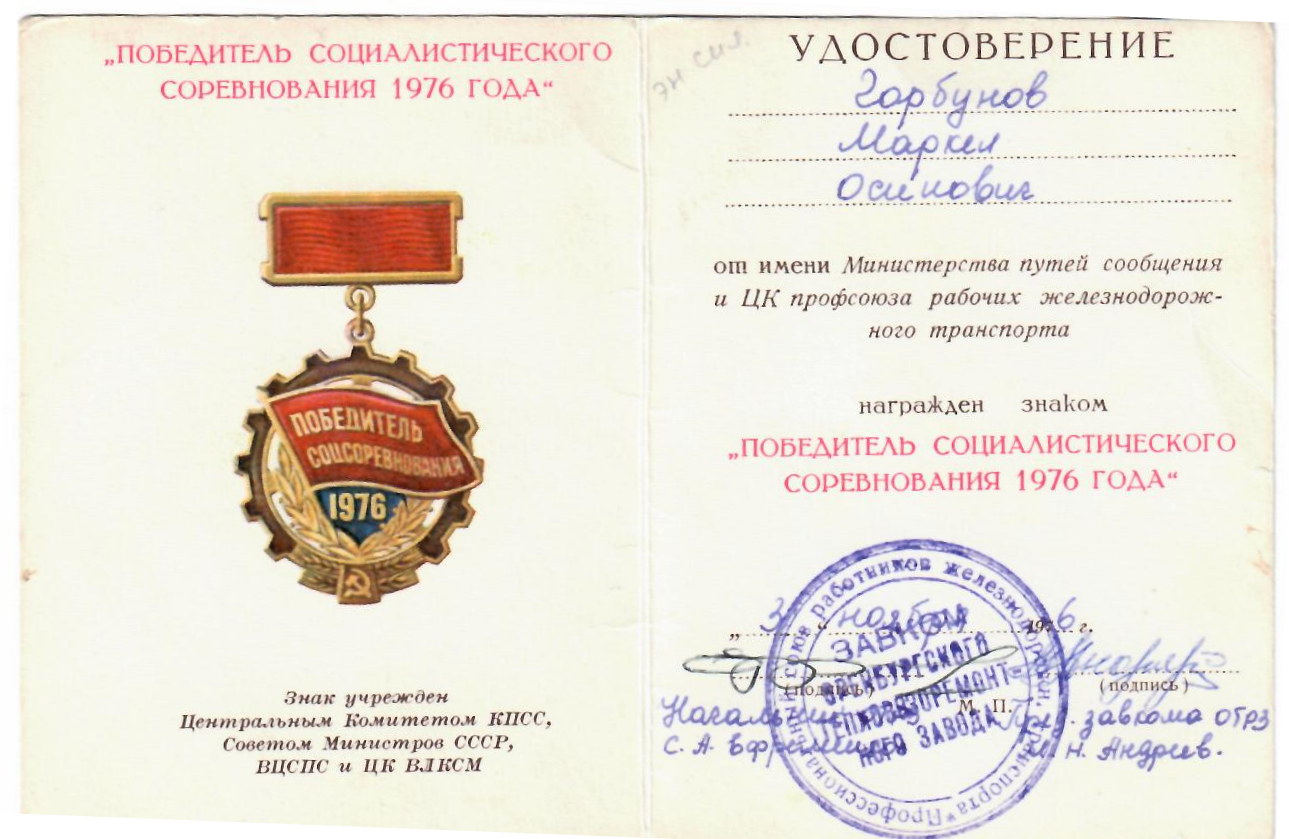 „ПОБЕДИТЕЛЬ СОЦИАЛИСТИЧЕСКОГО
СОРЕВНОВАНИЯ 1976 ГОДА“
ПОБЕДИТЕЛЬ
СОЦСОРЕВНОВАНИЯ
1976
Знак учрежден
Центральным Комитетом КПСС,
Советом Министров СССР,
ВЦСПС и ЦК ВЛКСМ
эн сил.
УДОСТОВЕРЕНИЕ
Горбунов
Маркел
Осипович
от имени Министерства путей сообщения
и ЦК профсоюза рабочих железнодорож-
ного транспорта
награжден знаком
„ПОБЕДИТЕЛЬ СОЦИАЛИСТИЧЕСКОГО
СОРЕВНОВАНИЯ 1976 ГОДА“
„ 3 “ ноября 1976 г.
(подпись) (подпись)
М. П.
Начальник Пред. завкома ОТРЗ
С. А. Н. Андреев.
Профессиональный союз работников железнодорожн. транспорта
ЗАВКОМ
ОРЕНБУРГСКОГО
ТЕПЛОВОЗОРЕМОНТ-
НОГО ЗАВОДА